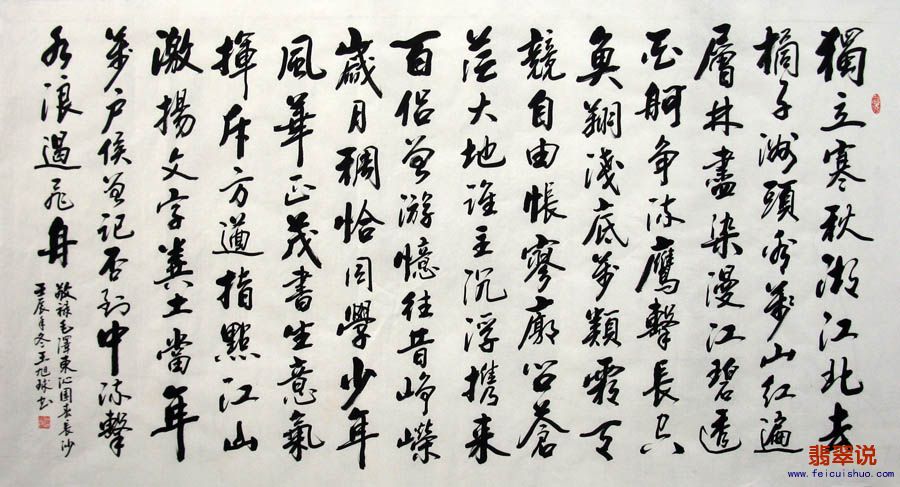 獨立寒秋湘江北去
橘子洲頭看萬山紅遍
層林盡染漫江碧透
百舸争流鷹擊長空
魚翔淺底萬類霜天
競自由悵寥廓問蒼
茫大地誰主沉浮攜來
百侣曾游憶往昔崢嶸
歲月稠恰同學少年
風華正茂書生意氣
揮斥方遒指點江山
激揚文字糞土當年
萬户侯曾記否到中流擊
水浪遏飛舟
敬録毛澤東沁園春長沙
壬辰年冬王旭球书
翡翠说
www.feicuishuo.com